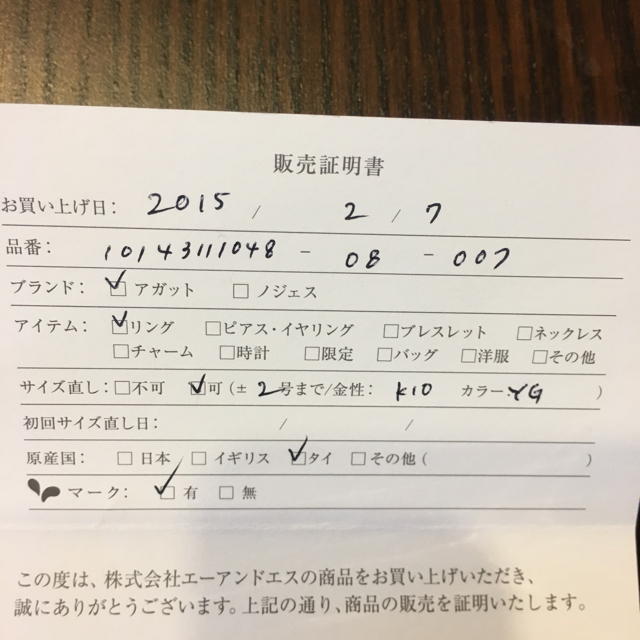 販売証明書
お買い上げ日: 2015 / 2 / 7
品番: 10143111048 - 08 - 007
ブランド: ☑ アガット □ ノジェス
アイテム: ☑リング □ピアス・イヤリング □ブレスレット □ネックレス
□チャーム □時計 □限定 □バッグ □洋服 □その他
サイズ直し: □不可 ☑可(± 2号まで/金性: K10 カラー:YG )
初回サイズ直し日: / /
原産国: □ 日本 □ イギリス ☑タイ □その他( )
マーク: ☑ 有 □ 無
この度は、株式会社エーアンドエスの商品をお買い上げいただき、
誠にありがとうございます。上記の通り、商品の販売を証明いたします。